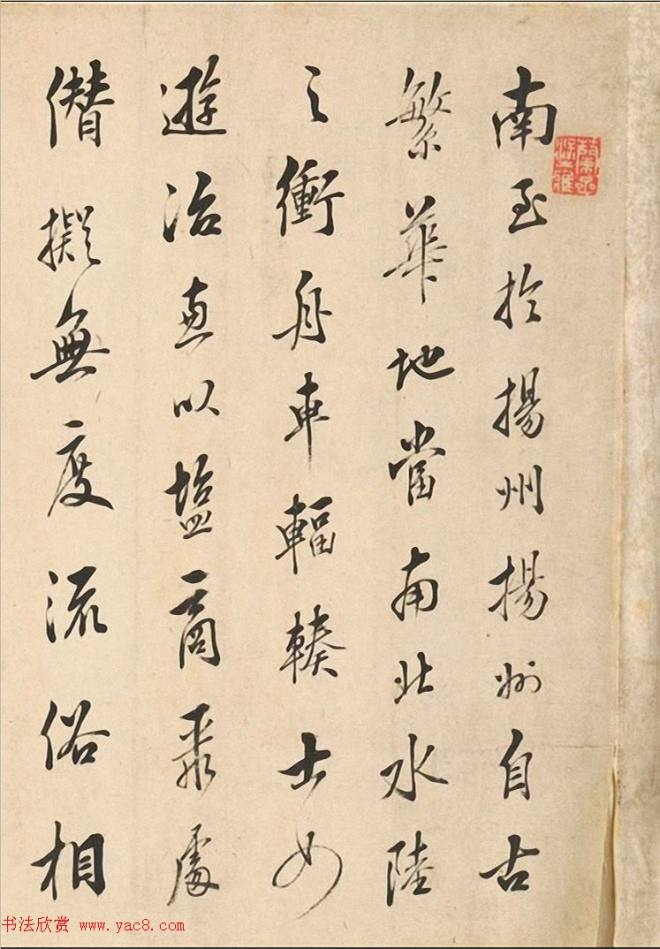 南至於揚州揚州自古
繁華地當南北水陸
之衝舟車輻輳士女
遊冶惠以塩商聚處
僣擬無度流俗相
书法欣赏 www.yac8.com